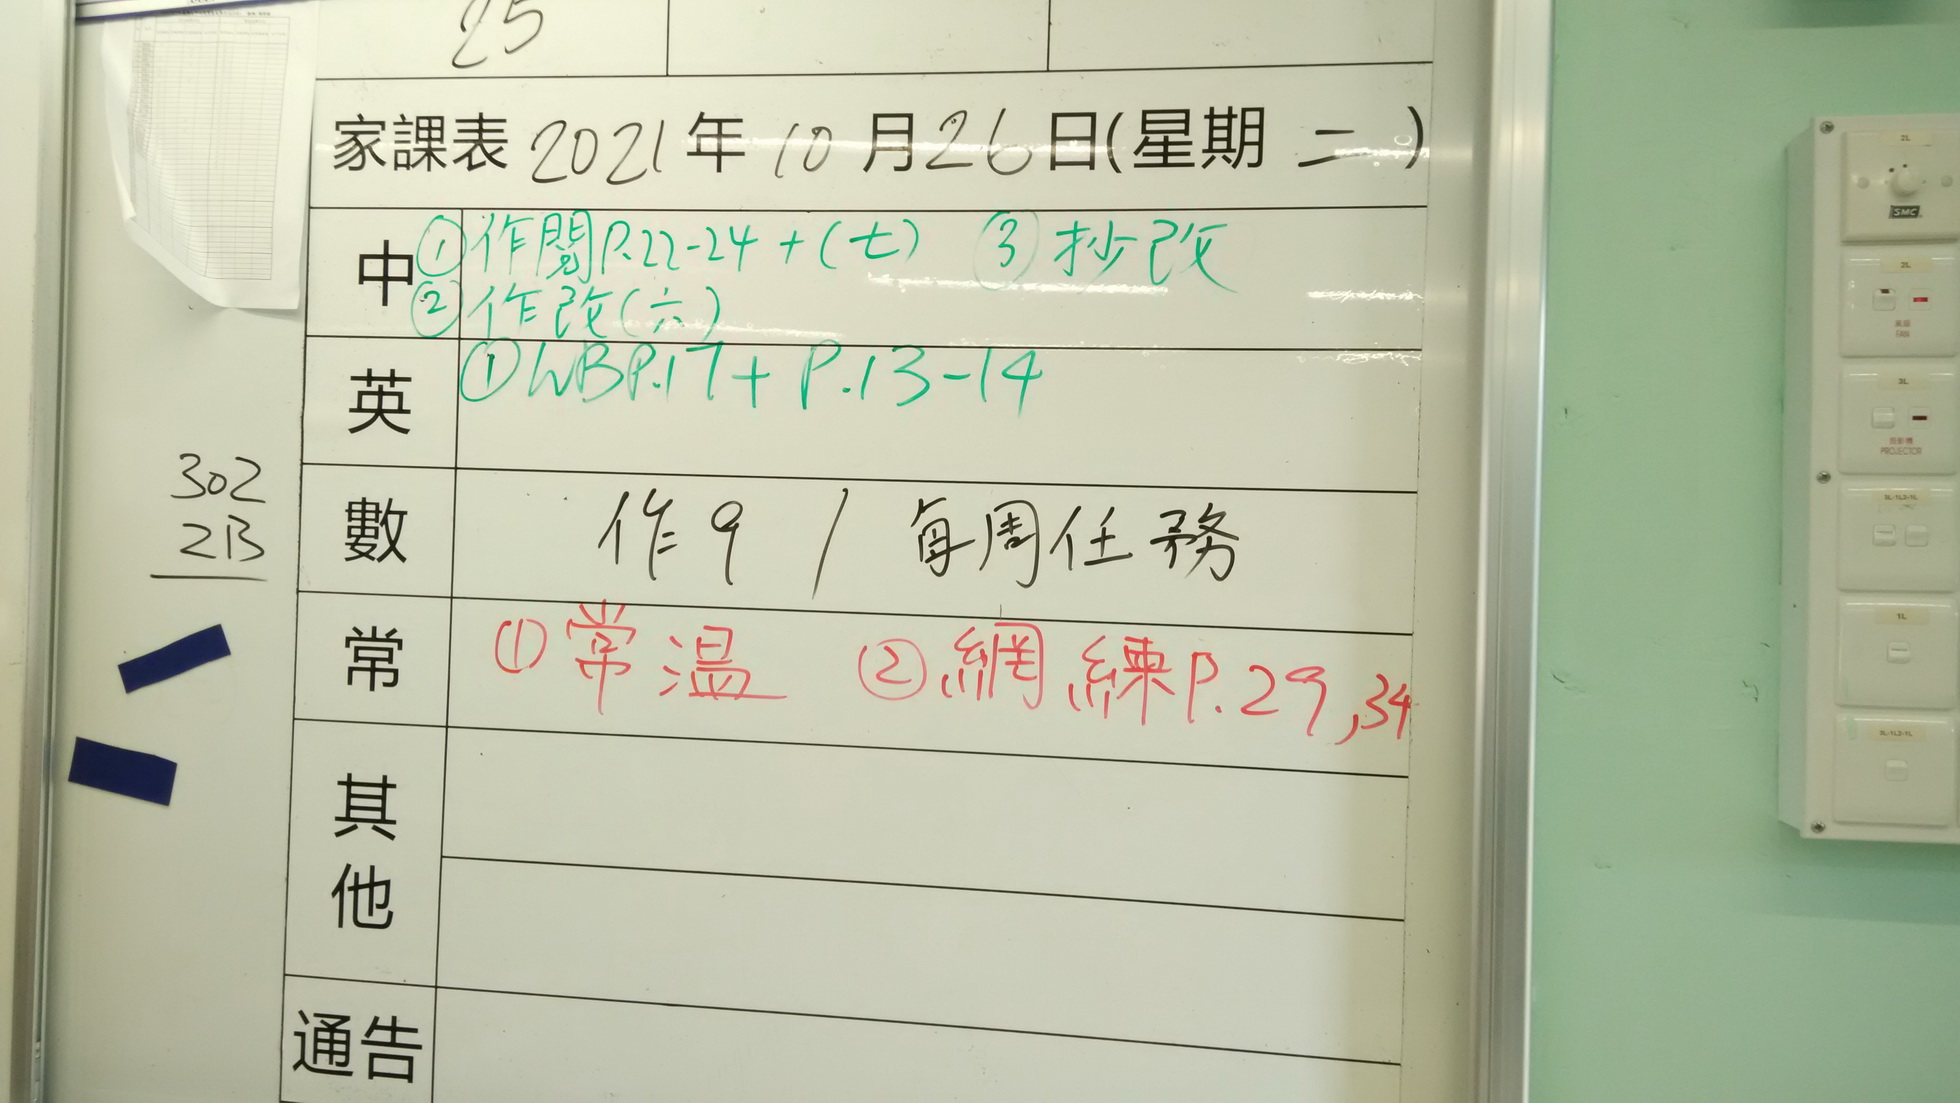 25
家課表 2021年 10月26日(星期 二 )
中 ①作閱P.22-24 + (七) ③抄改
②作改(六)
英 ①WBP.17+ P.13-14
302
2B
數 作9 / 每周任務
常 ①常溫 ②網練P.29,34
其他
通告
2L
SMC
2L
風扇
FAN
3L
投影機
PROJECTOR
3L-1L2-1L
1L
3L-1L2-1L